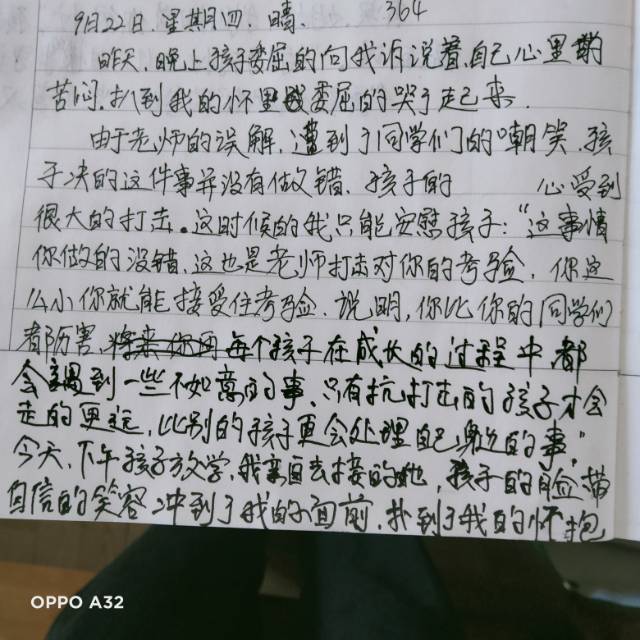 9月22日.星期四.晴. 364
昨天.晚上孩子委屈的向我诉说着.自己心里的
苦闷.扒到我的怀里委屈的哭了起来.
由于老师的误解.遭到了同学们的嘲笑.孩
子决的这件事并没有做错.孩子的 心受到
很大的打击。这时候的我只能安慰孩子:“这事情
你做的没错.这也是老师打击对你的考验.你这
么小你就能接受住考验.说明.你比你的同学们
都厉害.将来你遇每个孩子在成长的过程中都
会遇到一些不如意的事.只有抗打击的孩子才会
走的更远.比别的孩子更会处理自己身边的事.”
今天.下午孩子放学.我亲自去接的她.孩子的脸带
自信的笑容冲到了我的面前.扑到了我的怀抱
OPPO A32